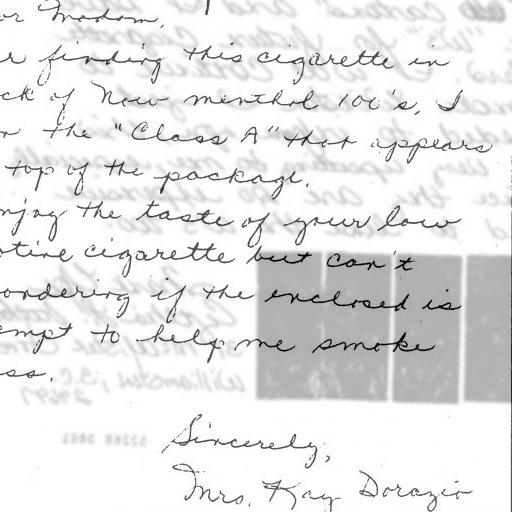 or Madam,
r finding this cigarette in
ck of Now menthol 100's, I
r the "Class A" that appears
top of the package.
njoy the taste of your low
otine cigarette but can't
ondering if the enclosed is
empt to help me smoke
ss.
Sincerely,
Mrs. Kay Dorazio